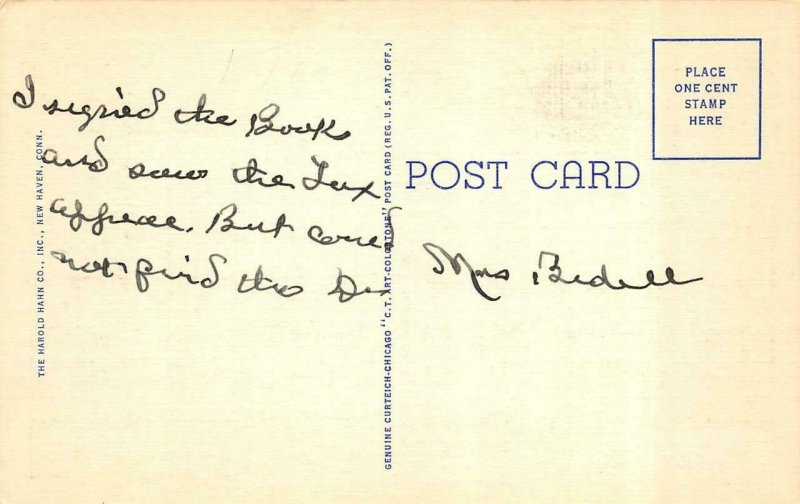 I signed the Book
and saw the Tax
appeae. But coued
not find the De
Mrs Bedell
POST CARD
PLACE
ONE CENT
STAMP
HERE
THE HAROLD HAHN CO., INC., NEW HAVEN, CONN.
GENUINE CURTEICH-CHICAGO "C.T. ART-COLORTONE" POST CARD (REG. U.S. PAT. OFF.)